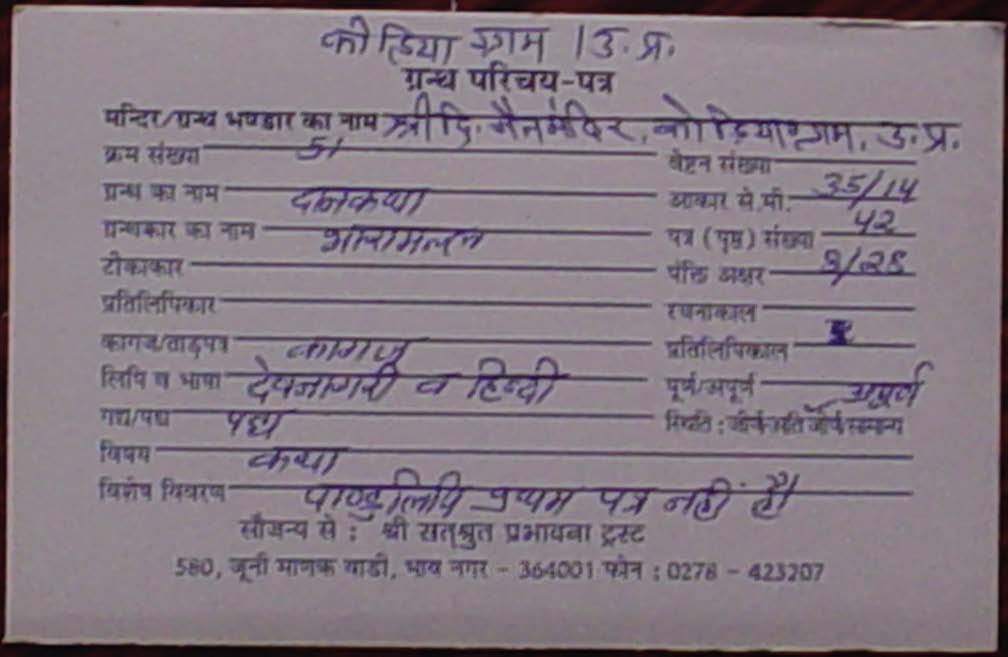 कोडिया ग्राम / उ. प्र.
ग्रन्थ परिचय-पत्र
मन्दिर/ग्रन्थ भण्डार का नाम श्री दि. जैन मंदिर, कोडिया ग्राम, उ. प्र.
क्रम संख्या 51 वेष्टन संख्या
ग्रन्थ का नाम दानकथा आकार से.मी. 35/14
ग्रन्थकार का नाम भारामल्ल पत्र (पृष्ठ) संख्या 42
टीकाकार पंक्ति अक्षर 9/28
प्रतिलिपिकार रचनाकाल
कागज/ताड़पत्र कागज प्रतिलिपिकाल
लिपि व भाषा देवनागरी व हिन्दी पूर्ण/अपूर्ण अपूर्ण
गद्य/पद्य पद्य स्थिति : जीर्ण अति जीर्ण सामान्य
विषय कथा
विशेष विवरण पाण्डुलिपि प्रथम पत्र नहीं है।
सौजन्य से : श्री सत्श्रुत प्रभावना ट्रस्ट
580, जूनी माणक वाडी, भाव नगर - 364001 फोन : 0278 - 423207